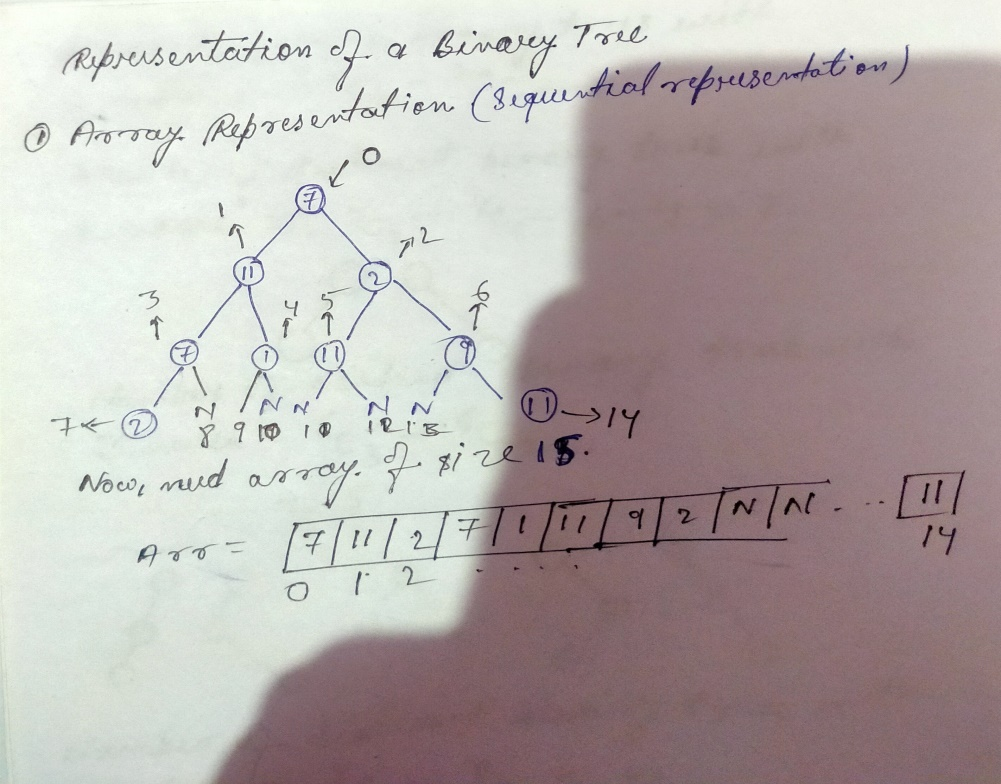 Representation of a Binary Tree
① Array Representation (Sequential representation)
0
7
1
2
11
2
3
4
5
6
7
1
11
9
7
2
N
N
N
N
N
11
14
8
9
10
12
13
Now, need array of size 15.
Arr = 7 11 2 7 1 11 9 2 N N ... 11
0 1 2 .... 14